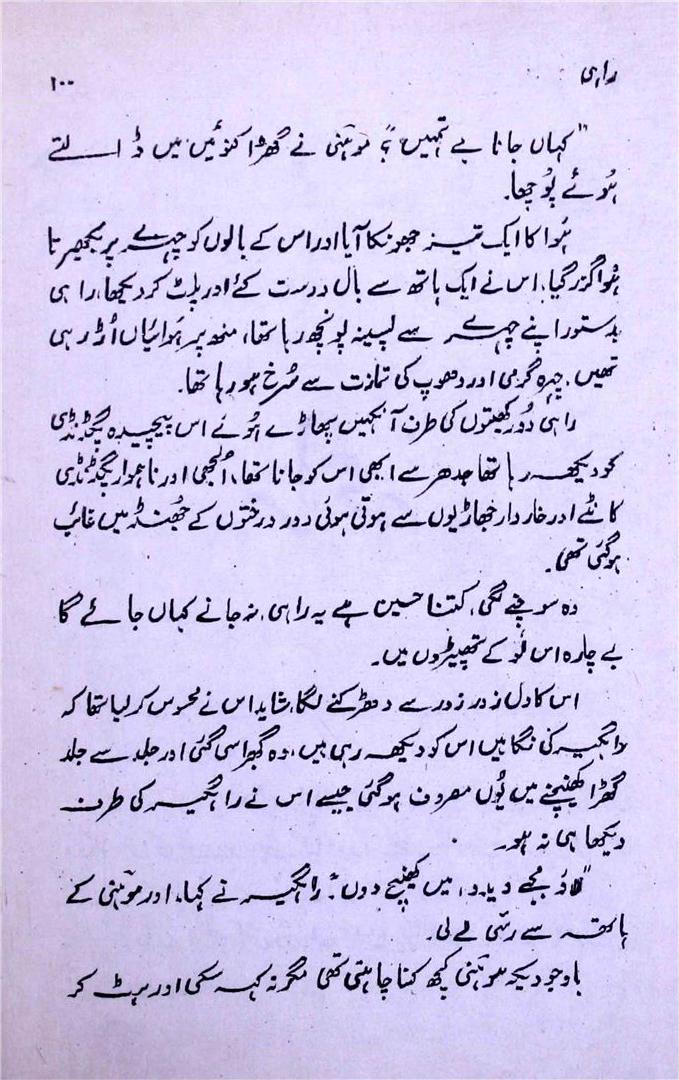 راہی ۱۰۰
"کہاں جانا ہے تمہیں"؟ موہنی نے گھڑا کنوئیں میں ڈالتے
ہُوئے پُوچھا۔
ہُوا کا ایک تیز جھونکا آیا اور اس کے بالوں کو چہرے پر بکھیرتا
ہُوا گزر گیا، اس نے ایک ہاتھ سے بال درست کئے اور پلٹ کر دیکھا، راہی
بدستور اپنے چہرے سے پسینہ پونچھ رہا تھا، منھ پر ہوائیاں اُڑ رہی
تھیں، چہرہ گرمی اور دھوپ کی تمازت سے سُرخ ہو رہا تھا۔
راہی دُور کھیتوں کی طرف آنکھیں پھاڑے ہُوئے اس پیچیدہ پگڈنڈی
کو دیکھ رہا تھا جدھر سے ابھی اس کو جانا تھا، اُلجھی اور ناہموار پگڈنڈی
کانٹے اور خاردار جھاڑیوں سے ہوتی ہوئی دور درختوں کے جھُنڈ میں غائب
ہو گئی تھی۔
وہ سوچنے لگی، کتنا حسین ہے یہ راہی، نہ جانے کہاں جائے گا
بے چارہ اس لُو کے تھپیڑوں میں۔
اس کا دل زور زور سے دھڑکنے لگا، شاید اس نے محسوس کر لیا تھا کہ
راہگیر کی نگاہیں اس کو دیکھ رہی ہیں، وہ گھبرا سی گئی اور جلد سے جلد
گھڑا کھینچنے میں یُوں مصروف ہو گئی جیسے اس نے راہگیر کی طرف
دیکھا ہی نہ ہو۔
"لاؤ مجھے دیدو، میں کھینچ دوں"۔ راہگیر نے کہا، اور موہنی کے
ہاتھ سے رسّی لے لی۔
باوجودیکہ موہنی کچھ کہنا چاہتی تھی مگر نہ کہہ سکی اور ہٹ کر